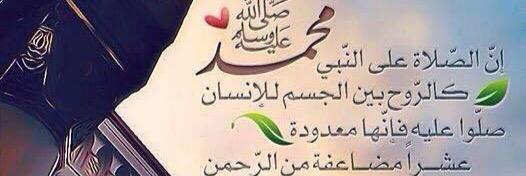 محمد صلى الله عليه وسلم
إنّ الصّلاة على النّبي
كالرّوح بين الجسم للإنسان
صلّوا عليه فإنّها معدودة
عشراً مضاعفة من الرّحمن